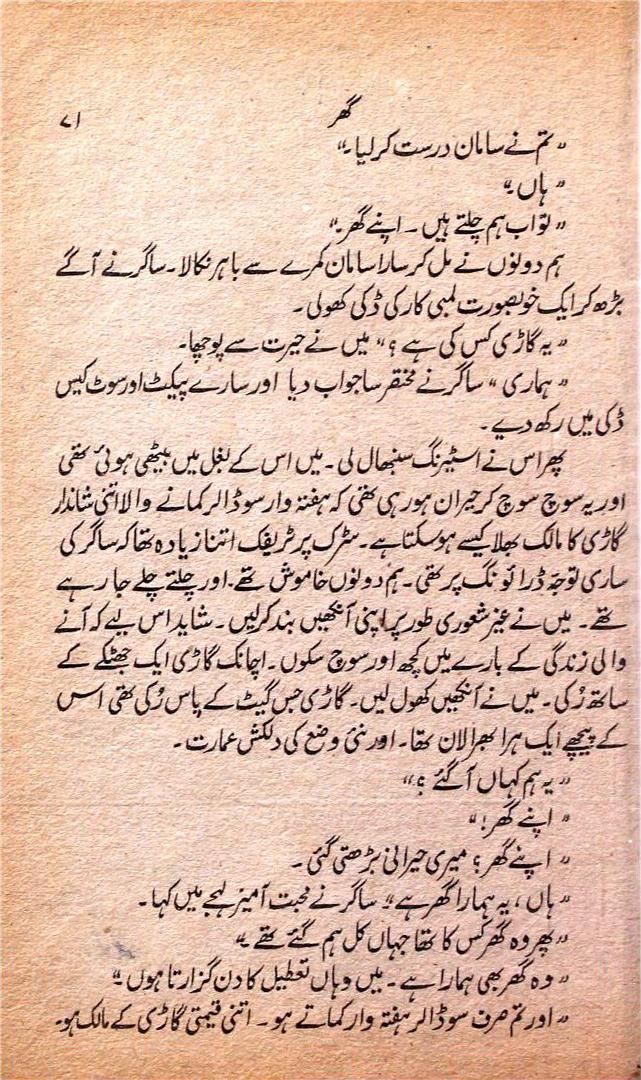 گھر ۷۱
”تم نے سامان درست کر لیا۔“
”ہاں۔“
”تو اب ہم چلتے ہیں۔ اپنے گھر۔“
ہم دونوں نے مل کر سارا سامان کمرے سے باہر نکالا۔ ساگر نے آگے
بڑھ کر ایک خوبصورت لمبی کار کی ڈکی کھولی۔
”یہ گاڑی کس کی ہے؟“ میں نے حیرت سے پوچھا۔
”ہماری“ ساگر نے مختصر سا جواب دیا اور سارے پیکٹ اور سوٹ کیس
ڈکی میں رکھ دیے۔
پھر اس نے اسٹیرنگ سنبھال لی۔ میں اس کے بغل میں بیٹھی ہوئی تھی
اور یہ سوچ سوچ کر حیران ہو رہی تھی کہ ہفتہ وار سو ڈالر کمانے والا اتنی شاندار
گاڑی کا مالک بھلا کیسے ہو سکتا ہے۔ سڑک پر ٹریفک اتنا زیادہ تھا کہ ساگر کی
ساری توجہ ڈرائونگ پر تھی۔ ہم دونوں خاموش تھے۔ اور چلتے چلے جا رہے
تھے۔ میں نے غیر شعوری طور پر اپنی آنکھیں بند کر لیں۔ شاید اس لیے کہ آنے
والی زندگی کے بارے میں کچھ اور سوچ سکوں۔ اچانک گاڑی ایک جھٹکے کے
ساتھ رُکی۔ میں نے آنکھیں کھول لیں۔ گاڑی جس گیٹ کے پاس رُکی تھی اس
کے پیچھے ایک ہرا بھرا لان تھا۔ اور نئی وضع کی دلکش عمارت۔
”یہ ہم کہاں آگئے؟“
”اپنے گھر!“
”اپنے گھر؟ میری حیرانی بڑھتی گئی۔
”ہاں، یہ ہمارا گھر ہے“۔ ساگر نے محبت آمیز لہجے میں کہا۔
”پھر وہ گھر کس کا تھا جہاں کل ہم گئے تھے۔“
”وہ گھر بھی ہمارا ہے۔ میں وہاں تعطیل کا دن گزارتا ہوں۔“
”اور تم صرف سو ڈالر ہفتہ وار کماتے ہو۔ اتنی قیمتی گاڑی کے مالک ہو۔